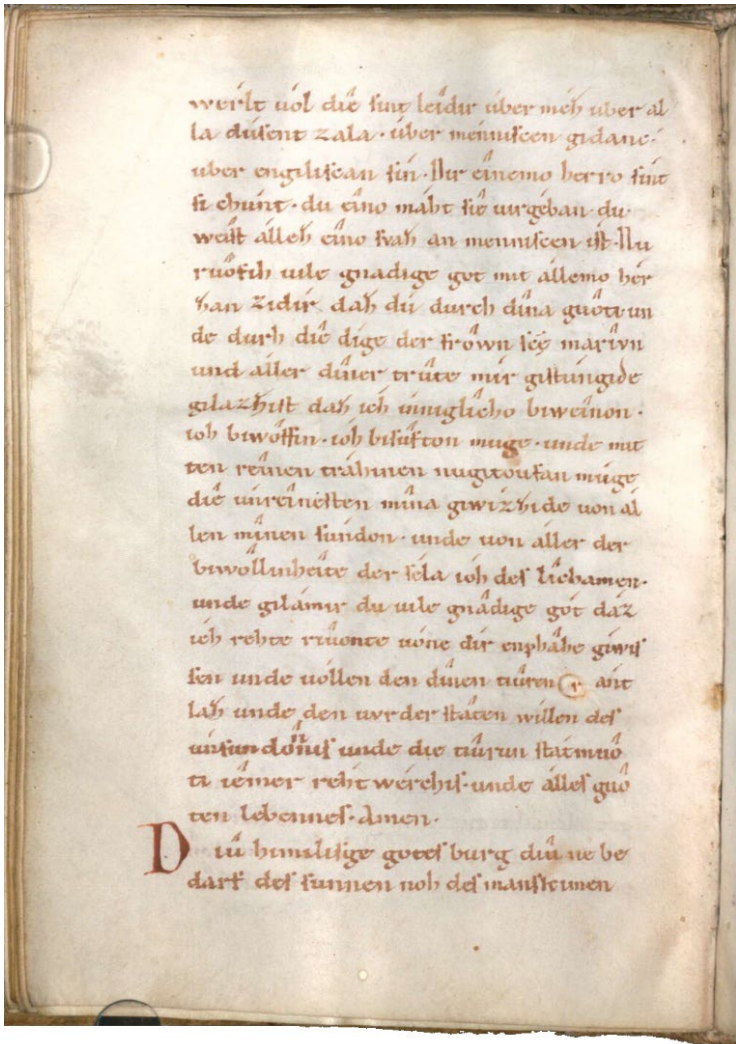 werlt uól die ſint leîdir úber méȥ uber al
la dúſent zala · úber menniſcen gidanc ·
uber engiliſcan ſin · Nur eînemo herro ſint
ſi chunt · du eîno máht ſiê uirgéban du
weiſt álleȥ eîno ſvaȥ an menniſcen iſt · Nu
ruôfih uile gnadige got mit állemo hér
ȥan zidir daȥ dú durch dîna guôti un
de durh die dige der frôwn ſc̄ę mariun
und aller dîner trûte mir giſtungide
gilazȥiſt daȥ ich inniglîcho biweinon ·
ioh biwôffin · ióh biſûfton muge · unde mit
ten reînen tráhinen nugitoufan múge
die unreineſten mîna giwizȥide uon ál
len mînen ſundon · unde von aller der
biwóllinheite der ſêla ióh deſ lîchamen ·
unde gilâmir du uile gnâdige gót daz
ich rehte riuonte uóne dir enphâhe giwiſ
ſen unde uóllen den dînen tiûren ant
laȥ unde den ſtâten willen deſ
unde die tiûrun ſtátmuô
ti iêmer rehtwérchiſ · unde álleſ guô
ten lebenneſ · Amen ·
Diû himiliſge goteſ burg diû ne be
darf deſ ſunnen noh deſ manſkimen